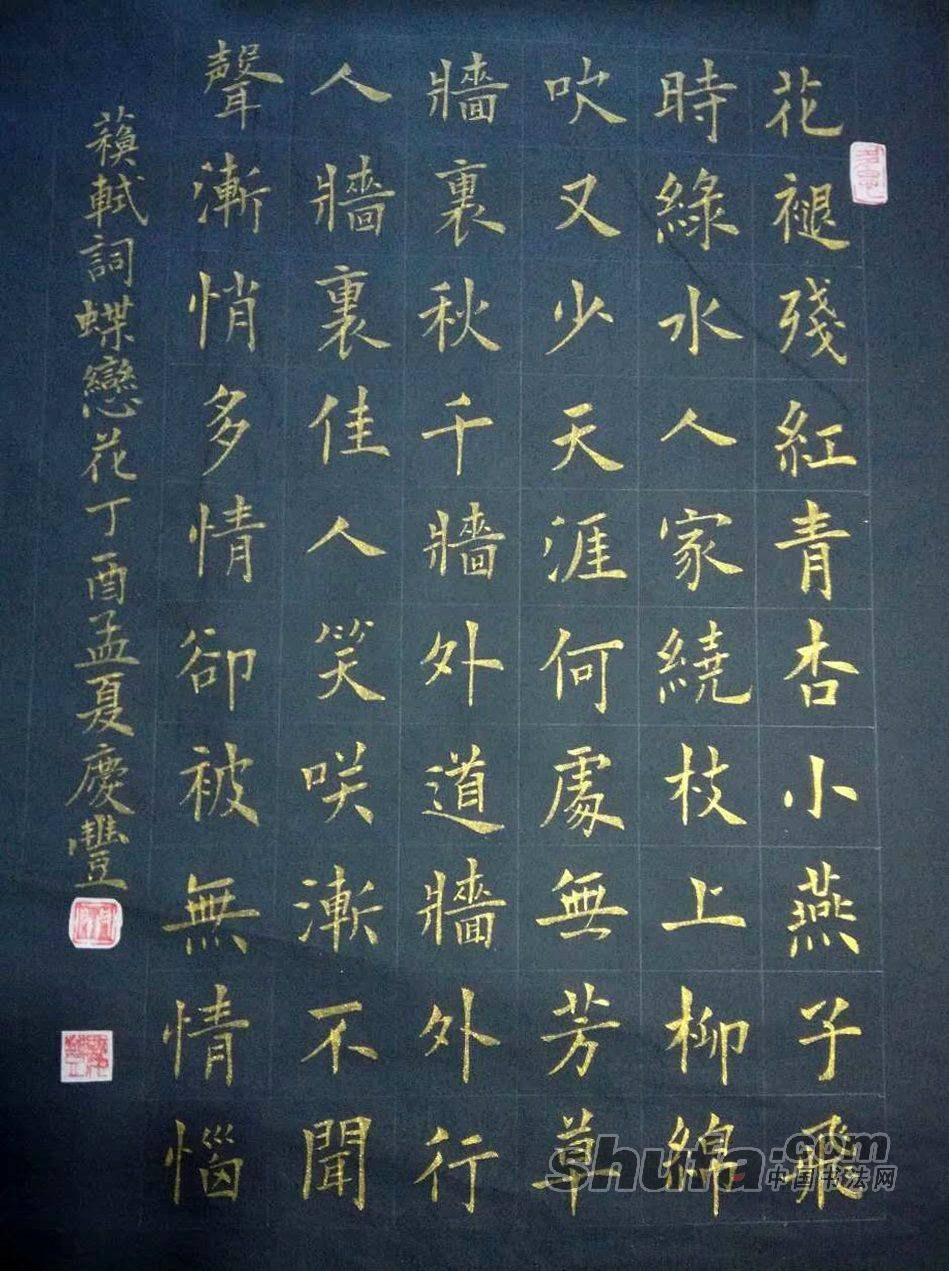 花褪殘紅青杏小燕子飛
時綠水人家繞枝上柳綿
吹又少天涯何處無芳草
牆裏秋千牆外道牆外行
人牆裏佳人笑咲漸不聞
聲漸悄多情卻被無情惱
蘓軾詞蝶戀花丁酉孟夏慶豐
shufa.com
中国书法网